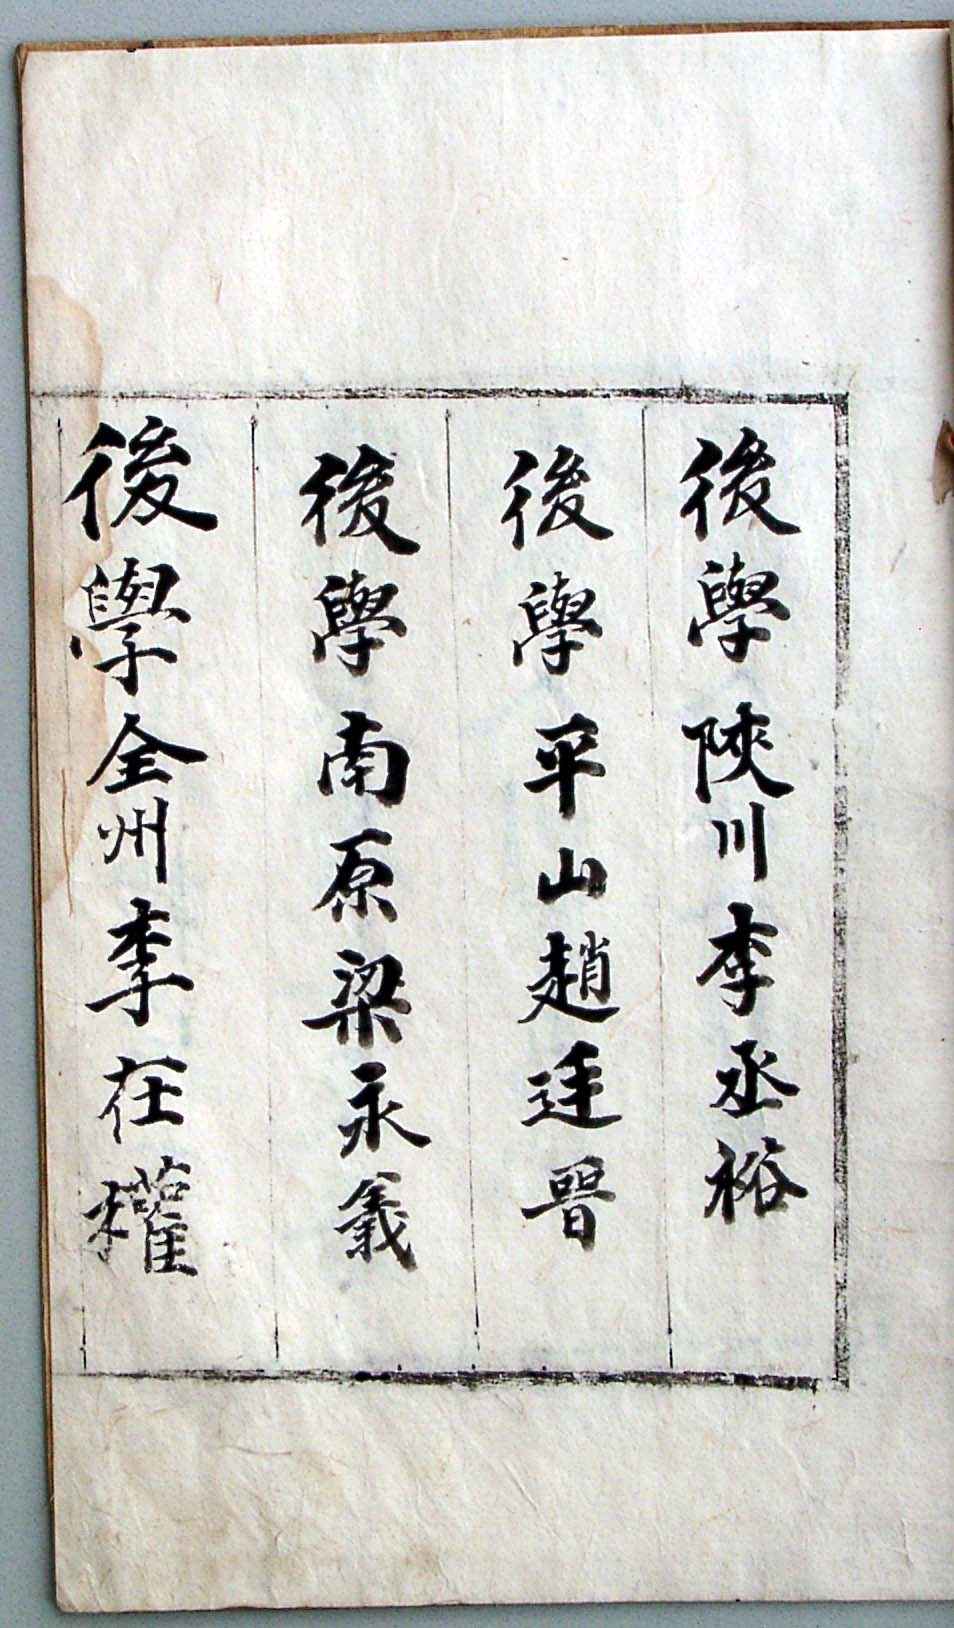 後學陜川李丞裕
後學平山趙廷晉
後學南原梁永義
後學全州李在權